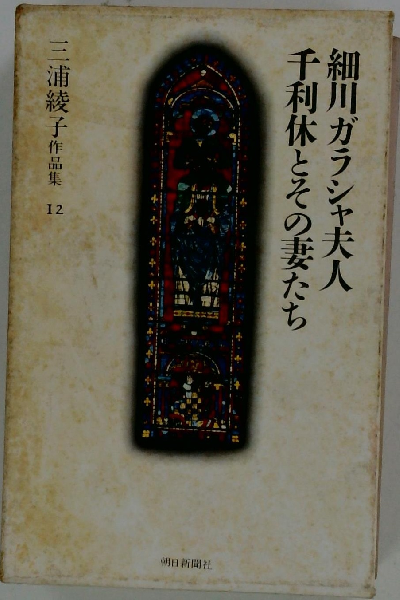 細川ガラシャ夫人
千利休とその妻たち
三浦綾子作品集 12
朝日新聞社